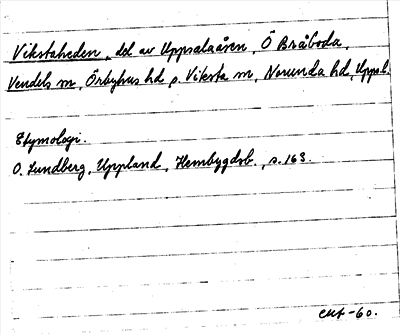 Vikstaheden, del av Uppsalaåsen, Ö Bråboda,
Vendels sn, Örbyhus hd o. Viksta sn, Norunda hd, Uppl.
Etymologi.
O. Lundberg, Uppland, Hembygdsb., s. 163.
-60.